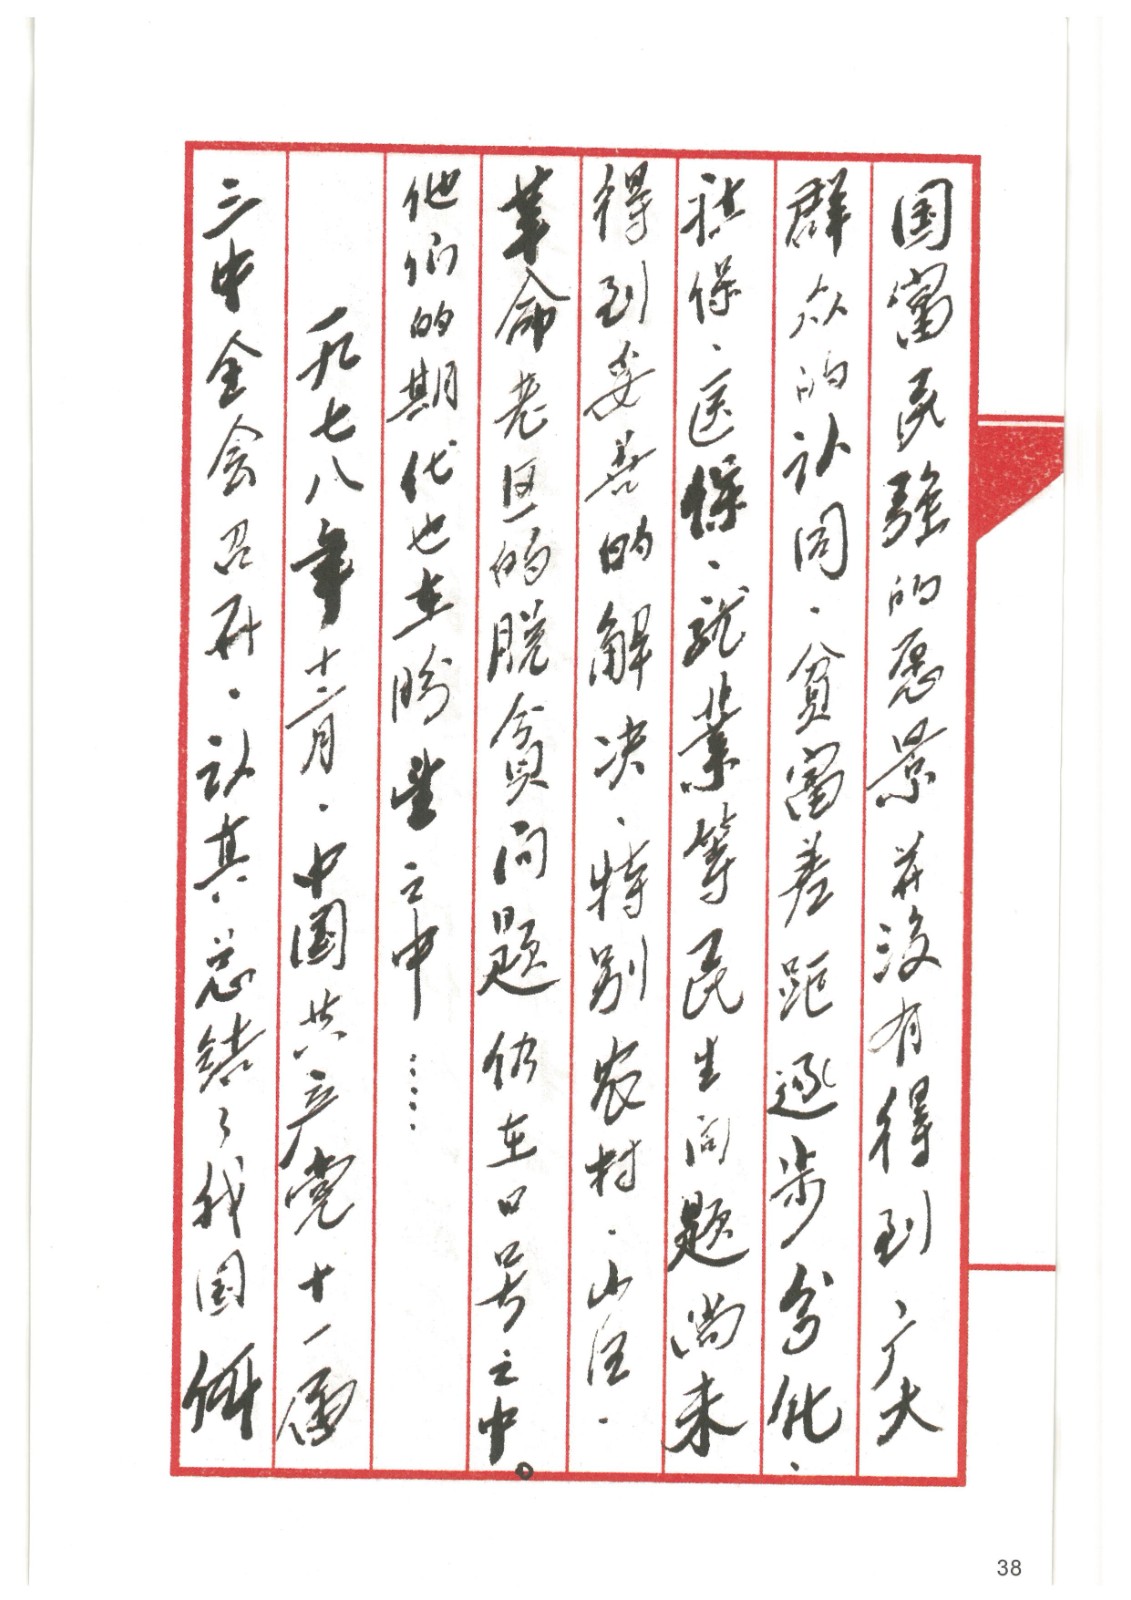 国富民强的愿景并没有得到广大
群众的认同、贫富差距逐步分化、
社保、医保、就业等民生问题尚未
得到妥善的解决、特别农村、山区、
革命老区的脱贫问题仍在口号之中。
他们的期代也在盼望之中……
一九七八年十二月、中国共产党十一届
三中全会召开、认真总结了我国
38